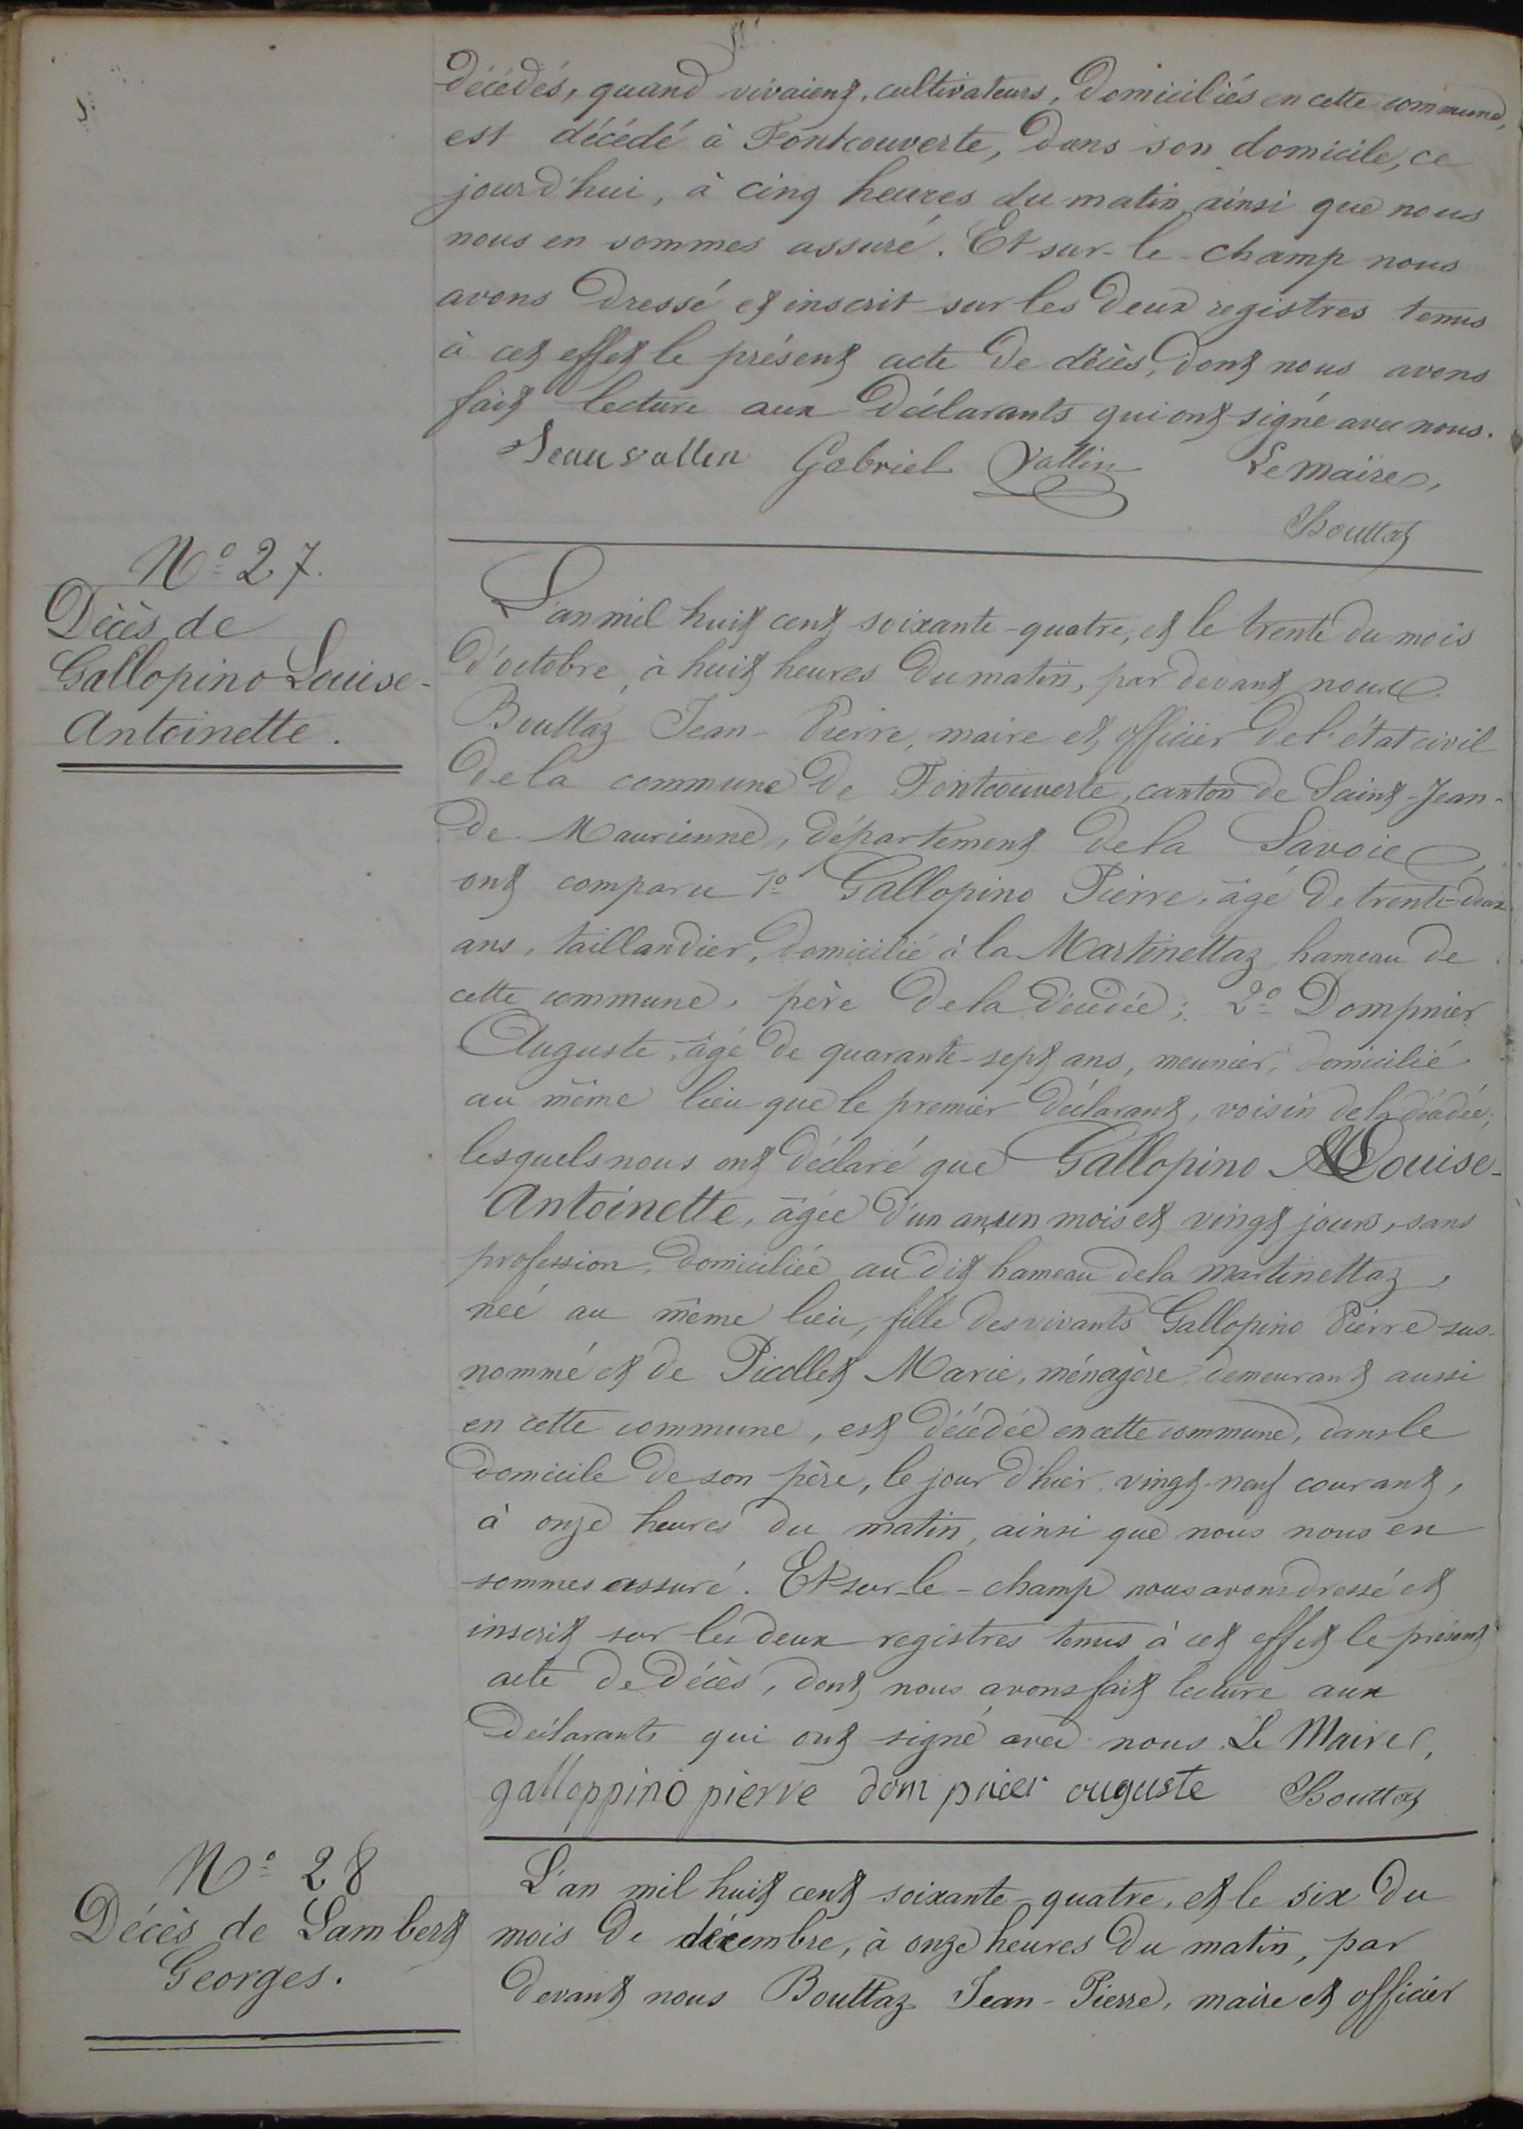 décédés, quand vivaient, cultivateurs, domiciliés en cette commune,
est décédé à Fontcouverte, dans son domicile, ce
jourd'hui, à cinq heures du matin ainsi que nous
nous en sommes assuré. Et sur-le-champ nous
avons dressé et inscrit sur les deux registres tenus
à cet effet le présent acte de décès, dont nous avons
fait lecture aux déclarants qui ont signé avec nous.
Jean vallin Gabriel Vallin Le Maire,
Bouttaz
N.o 27.
Décès de
Gallopino Louise-
Antoinette.
L'an mil huit cent soixante-quatre, et le trente du mois
d'octobre, à huit heures du matin, par devant nous
Bouttaz Jean-Pierre, maire et officier de l'état civil
de la commune de Fontcouverte, canton de Saint-Jean-
de-Maurienne, département de la Savoie,
ont comparu 1o Gallopino Pierre, âgé de trente-deux
ans, taillandier, domicilié à la Martinettaz, hameau de
cette commune, père de la décédée; 2o Dompnier
Auguste, âgé de quarante-sept ans, meunier, domicilié
au même lieu que le premier déclarant, voisin de la décédée;
lesquels nous ont déclaré que Gallopino Louise-
Antoinette, âgée d'un an, un mois et vingt jours, sans
profession, domiciliée au dit hameau de la Martinettaz,
née au même lieu, fille des vivants Gallopino Pierre sus-
nommé et de Picollet Marie, ménagère demeurant aussi
en cette commune, est décédée en cette commune, dans le
domicile de son père, le jour d'hier, vingt-neuf courant,
à onze heures du matin, ainsi que nous nous en
sommes assuré. Et sur-le-champ nous avons dressé et
inscrit sur les deux registres tenus à cet effet le présent
acte de décès, dont nous avons fait lecture aux
déclarants qui ont signé avec nous. Le Maire,
galloppino pierre dom pnier auguste Bouttaz
N.o 28
Décès de Lambert
Georges.
L'an mil huit cent soixante-quatre, et le six du
mois de décembre, à onze heures du matin, par
devant nous Bouttaz Jean-Pierre, maire et officier